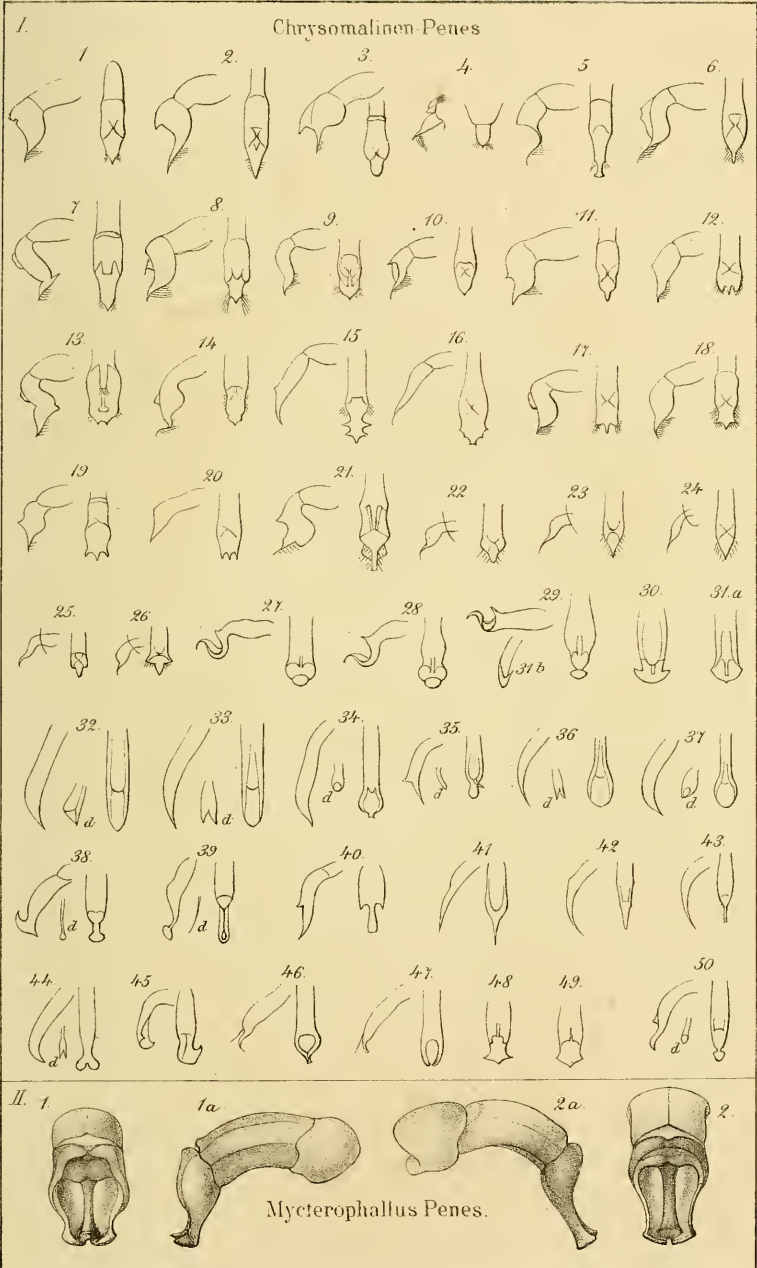 I.
Chrysomalinen-Penes
1 2. 3. 4. 5 6.
7 8. 9. 10. 11. 12.
13. 14 15 16. 17. 18.
19 20 21. 22 23. 24
25. 26. 27. 28 29. 30. 31.a
31b
32. 33. 34. 35. 36 37
d d. d d d d.
38. 39 40. 41 42 43.
d d
44. 45 46. 47. 48 49. 50
d d
II. 1. 1a. 2a. 2.
Mycterophallus Penes.